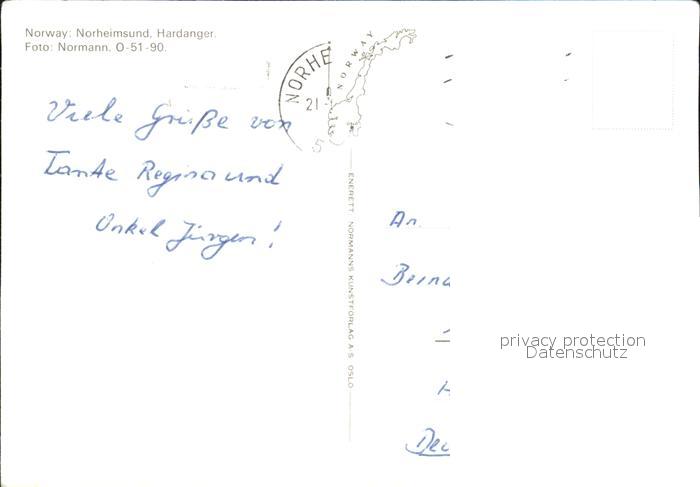 Norway: Norheimsund, Hardanger.
Foto: Normann. O-51-90.
NORHE
21
5
NORWAY
Viele Grüße von
Tante Regina und
Onkel Jürgen!
ENERETT NORMANNS KUNSTFORLAG A·S OSLO
An
Berna
privacy protection
Datenschutz
H
Deu